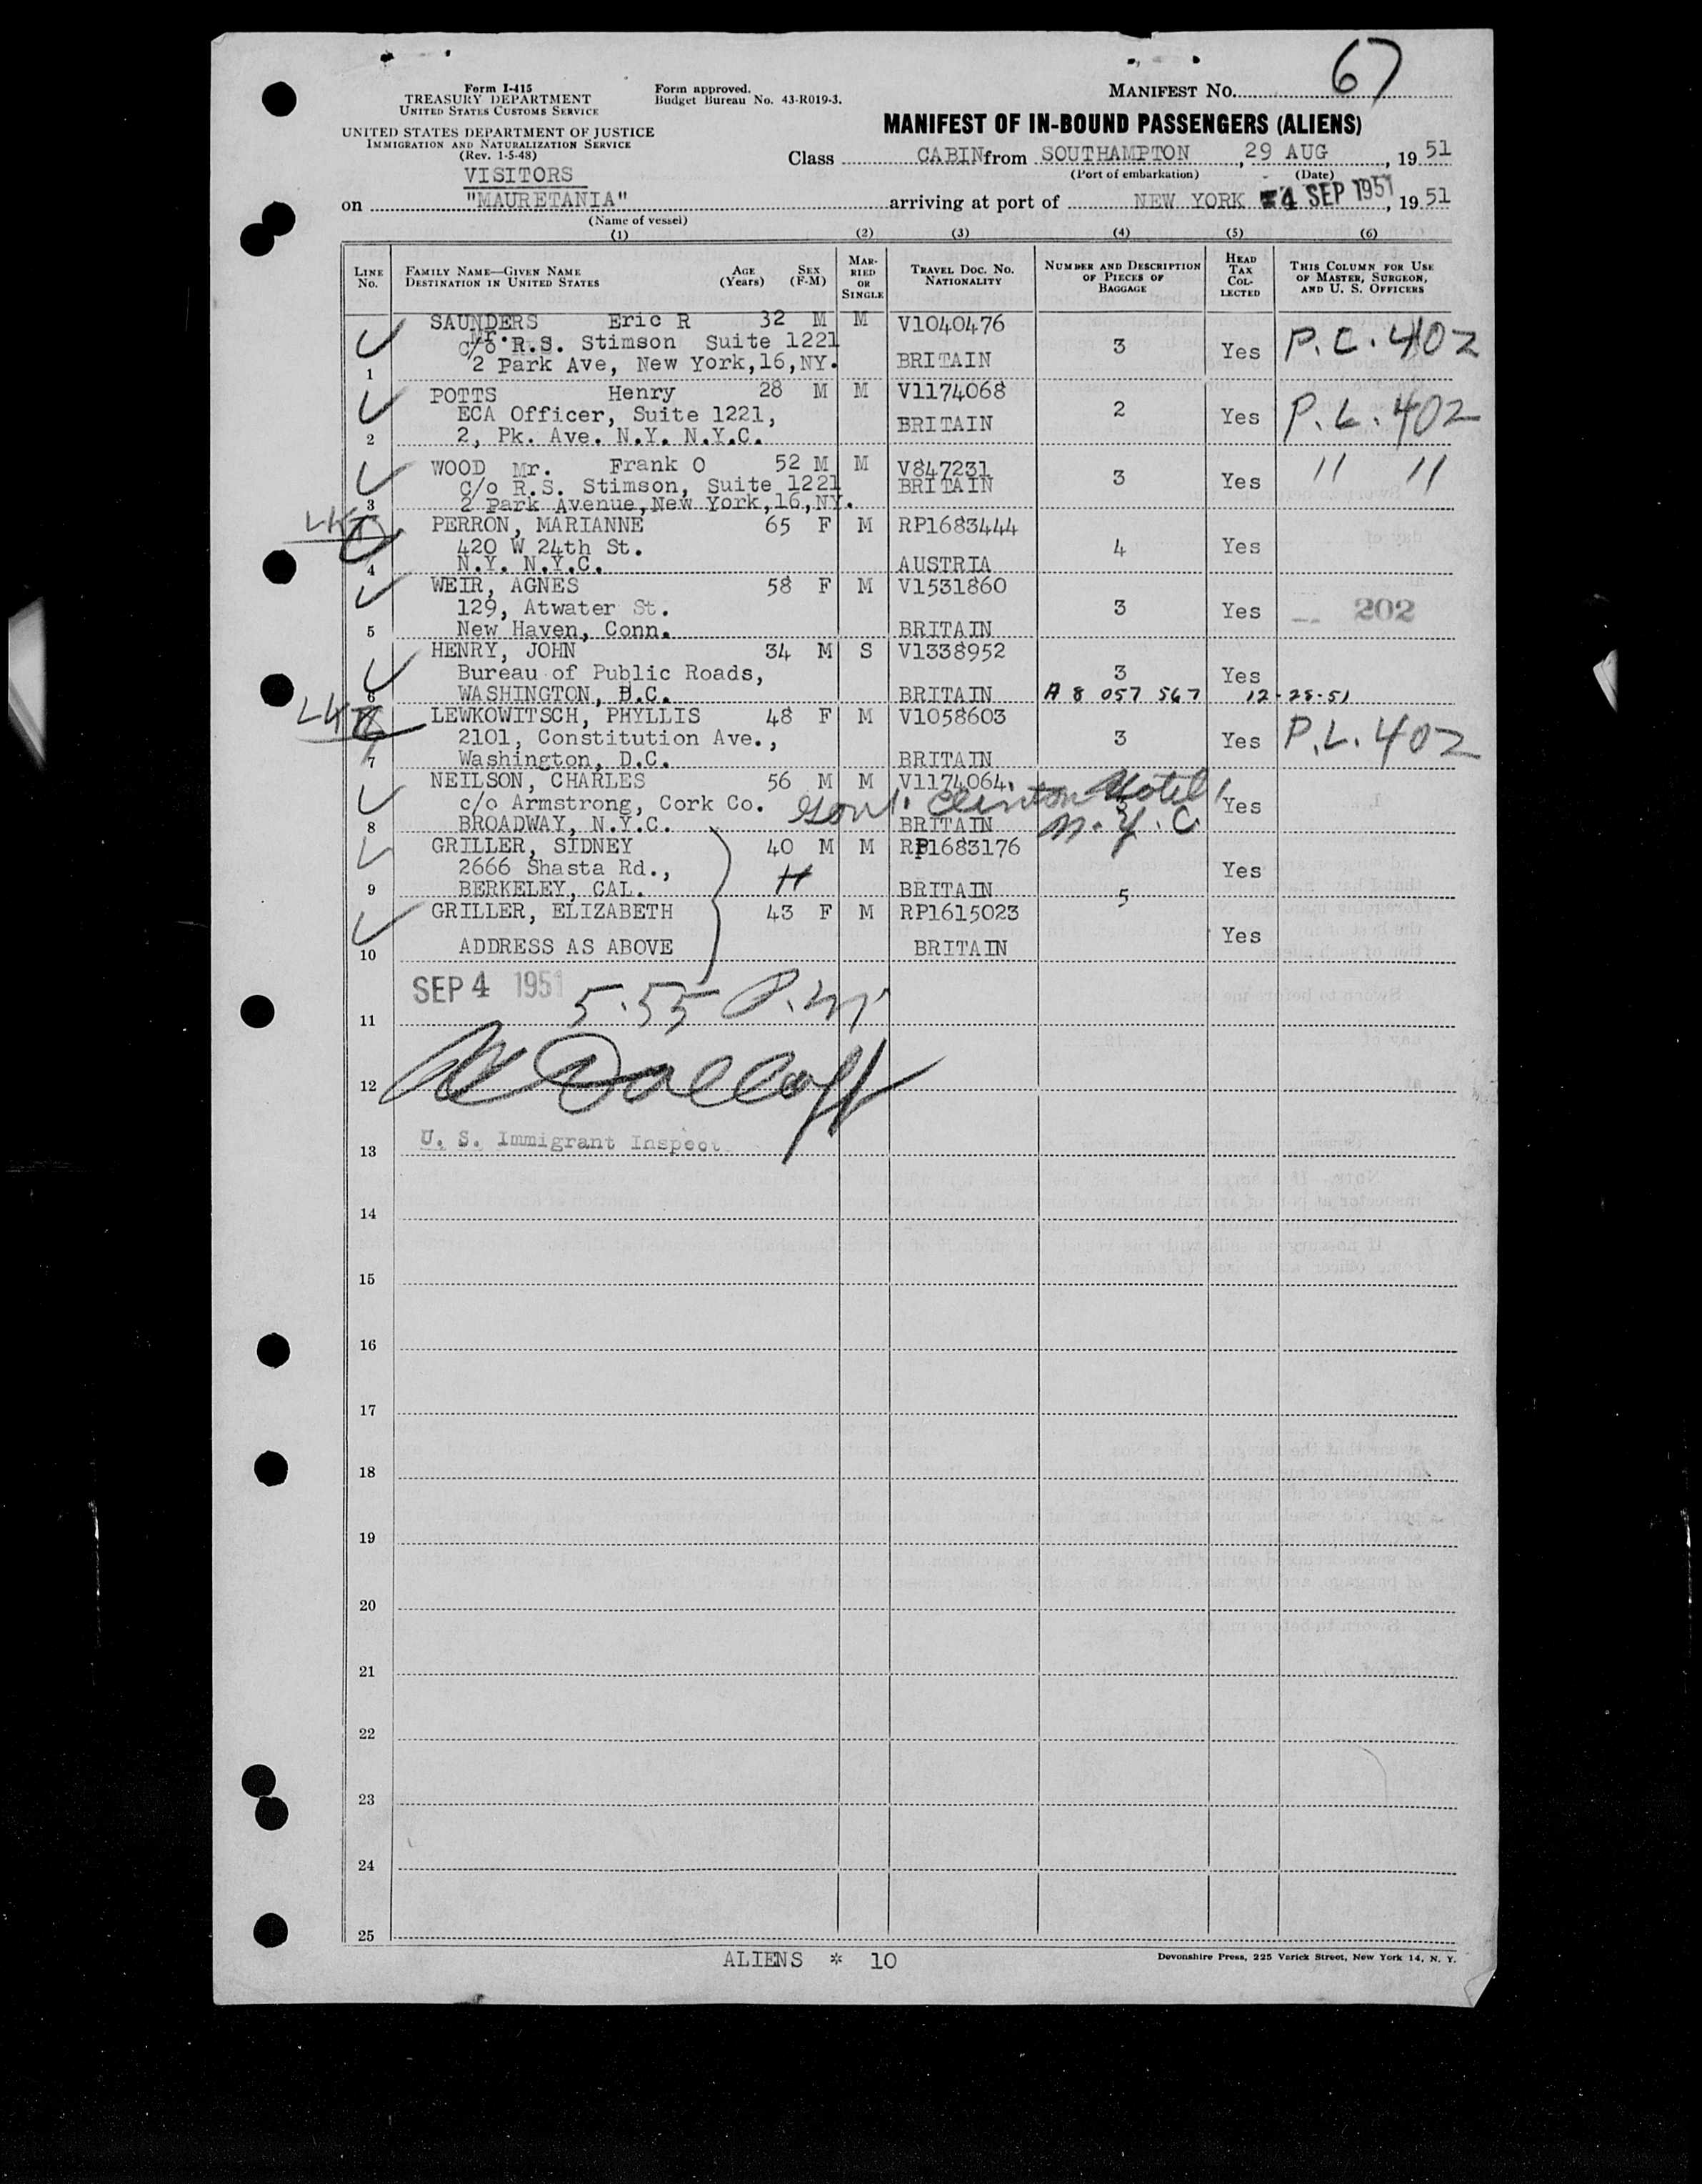 67
Form I-415
TREASURY DEPARTMENT
UNITED STATES CUSTOMS SERVICE
Form approved.
Budget Bureau No. 43-R019-3.
MANIFEST NO.
UNITED STATES DEPARTMENT OF JUSTICE
IMMIGRATION AND NATURALIZATION SERVICE
(Rev. 1-5-48)
MANIFEST OF IN-BOUND PASSENGERS (ALIENS)
Class CABIN from SOUTHAMPTON, 29 AUG, 1951
(Port of embarkation) (Date)
VISITORS
on "MAURETANIA" arriving at port of NEW YORK 4 SEP 1951, 1951
(Name of vessel)
(1) (2) (3) (4) (5) (6)
LINE NO.
FAMILY NAME—GIVEN NAME
DESTINATION IN UNITED STATES
AGE (Years)
SEX (F-M)
MARRIED OR SINGLE
TRAVEL DOC. NO.
NATIONALITY
NUMBER AND DESCRIPTION OF PIECES OF BAGGAGE
HEAD TAX COLLECTED
THIS COLUMN FOR USE OF MASTER, SURGEON, AND U. S. OFFICERS
SAUNDERS Mr. Eric R 32 M M V1040476
c/o R.S. Stimson Suite 1221 3 Yes P.L. 402
1 2 Park Ave, New York,16,NY. BRITAIN
POTTS Henry 28 M M V1174068
ECA Officer, Suite 1221, BRITAIN 2 Yes P.L. 402
2 2, Pk. Ave. N.Y. N.Y.C.
WOOD Mr. Frank O 52 M M V847231 " "
C/o R.S. Stimson, Suite 1221 BRITAIN 3 Yes
3 2 Park Avenue,New York,16,NY.
PERRON, MARIANNE 65 F M RP1683444
420 W 24th St. 4 Yes
4 N.Y. N.Y.C. AUSTRIA
WEIR, AGNES 58 F M V1531860
129, Atwater St. 3 Yes 202
5 New Haven, Conn. BRITAIN
HENRY, JOHN 34 M S V1338952
Bureau of Public Roads, 3 Yes
6 WASHINGTON, D.C. BRITAIN A 8 057 567 12-28-51
LEWKOWITSCH, PHYLLIS 48 F M V1058603
2101, Constitution Ave., 3 Yes P.L. 402
7 Washington, D.C. BRITAIN
NEILSON, CHARLES 56 M M V1174064
c/o Armstrong, Cork Co. Gov. Clinton Hotel 3 Yes
8 BROADWAY, N.Y.C. BRITAIN N.Y.C.
GRILLER, SIDNEY 40 M M RP1683176
2666 Shasta Rd., H Yes
9 BERKELEY, CAL. BRITAIN 5
GRILLER, ELIZABETH 43 F M RP1615023
ADDRESS AS ABOVE BRITAIN Yes
10
SEP 4 1951 5.55 P.M
11
12
U. S. Immigrant Inspect
13
14
15
16
17
18
19
20
21
22
23
24
25
ALIENS * 10
Devonshire Press, 225 Varick Street, New York 14, N. Y.